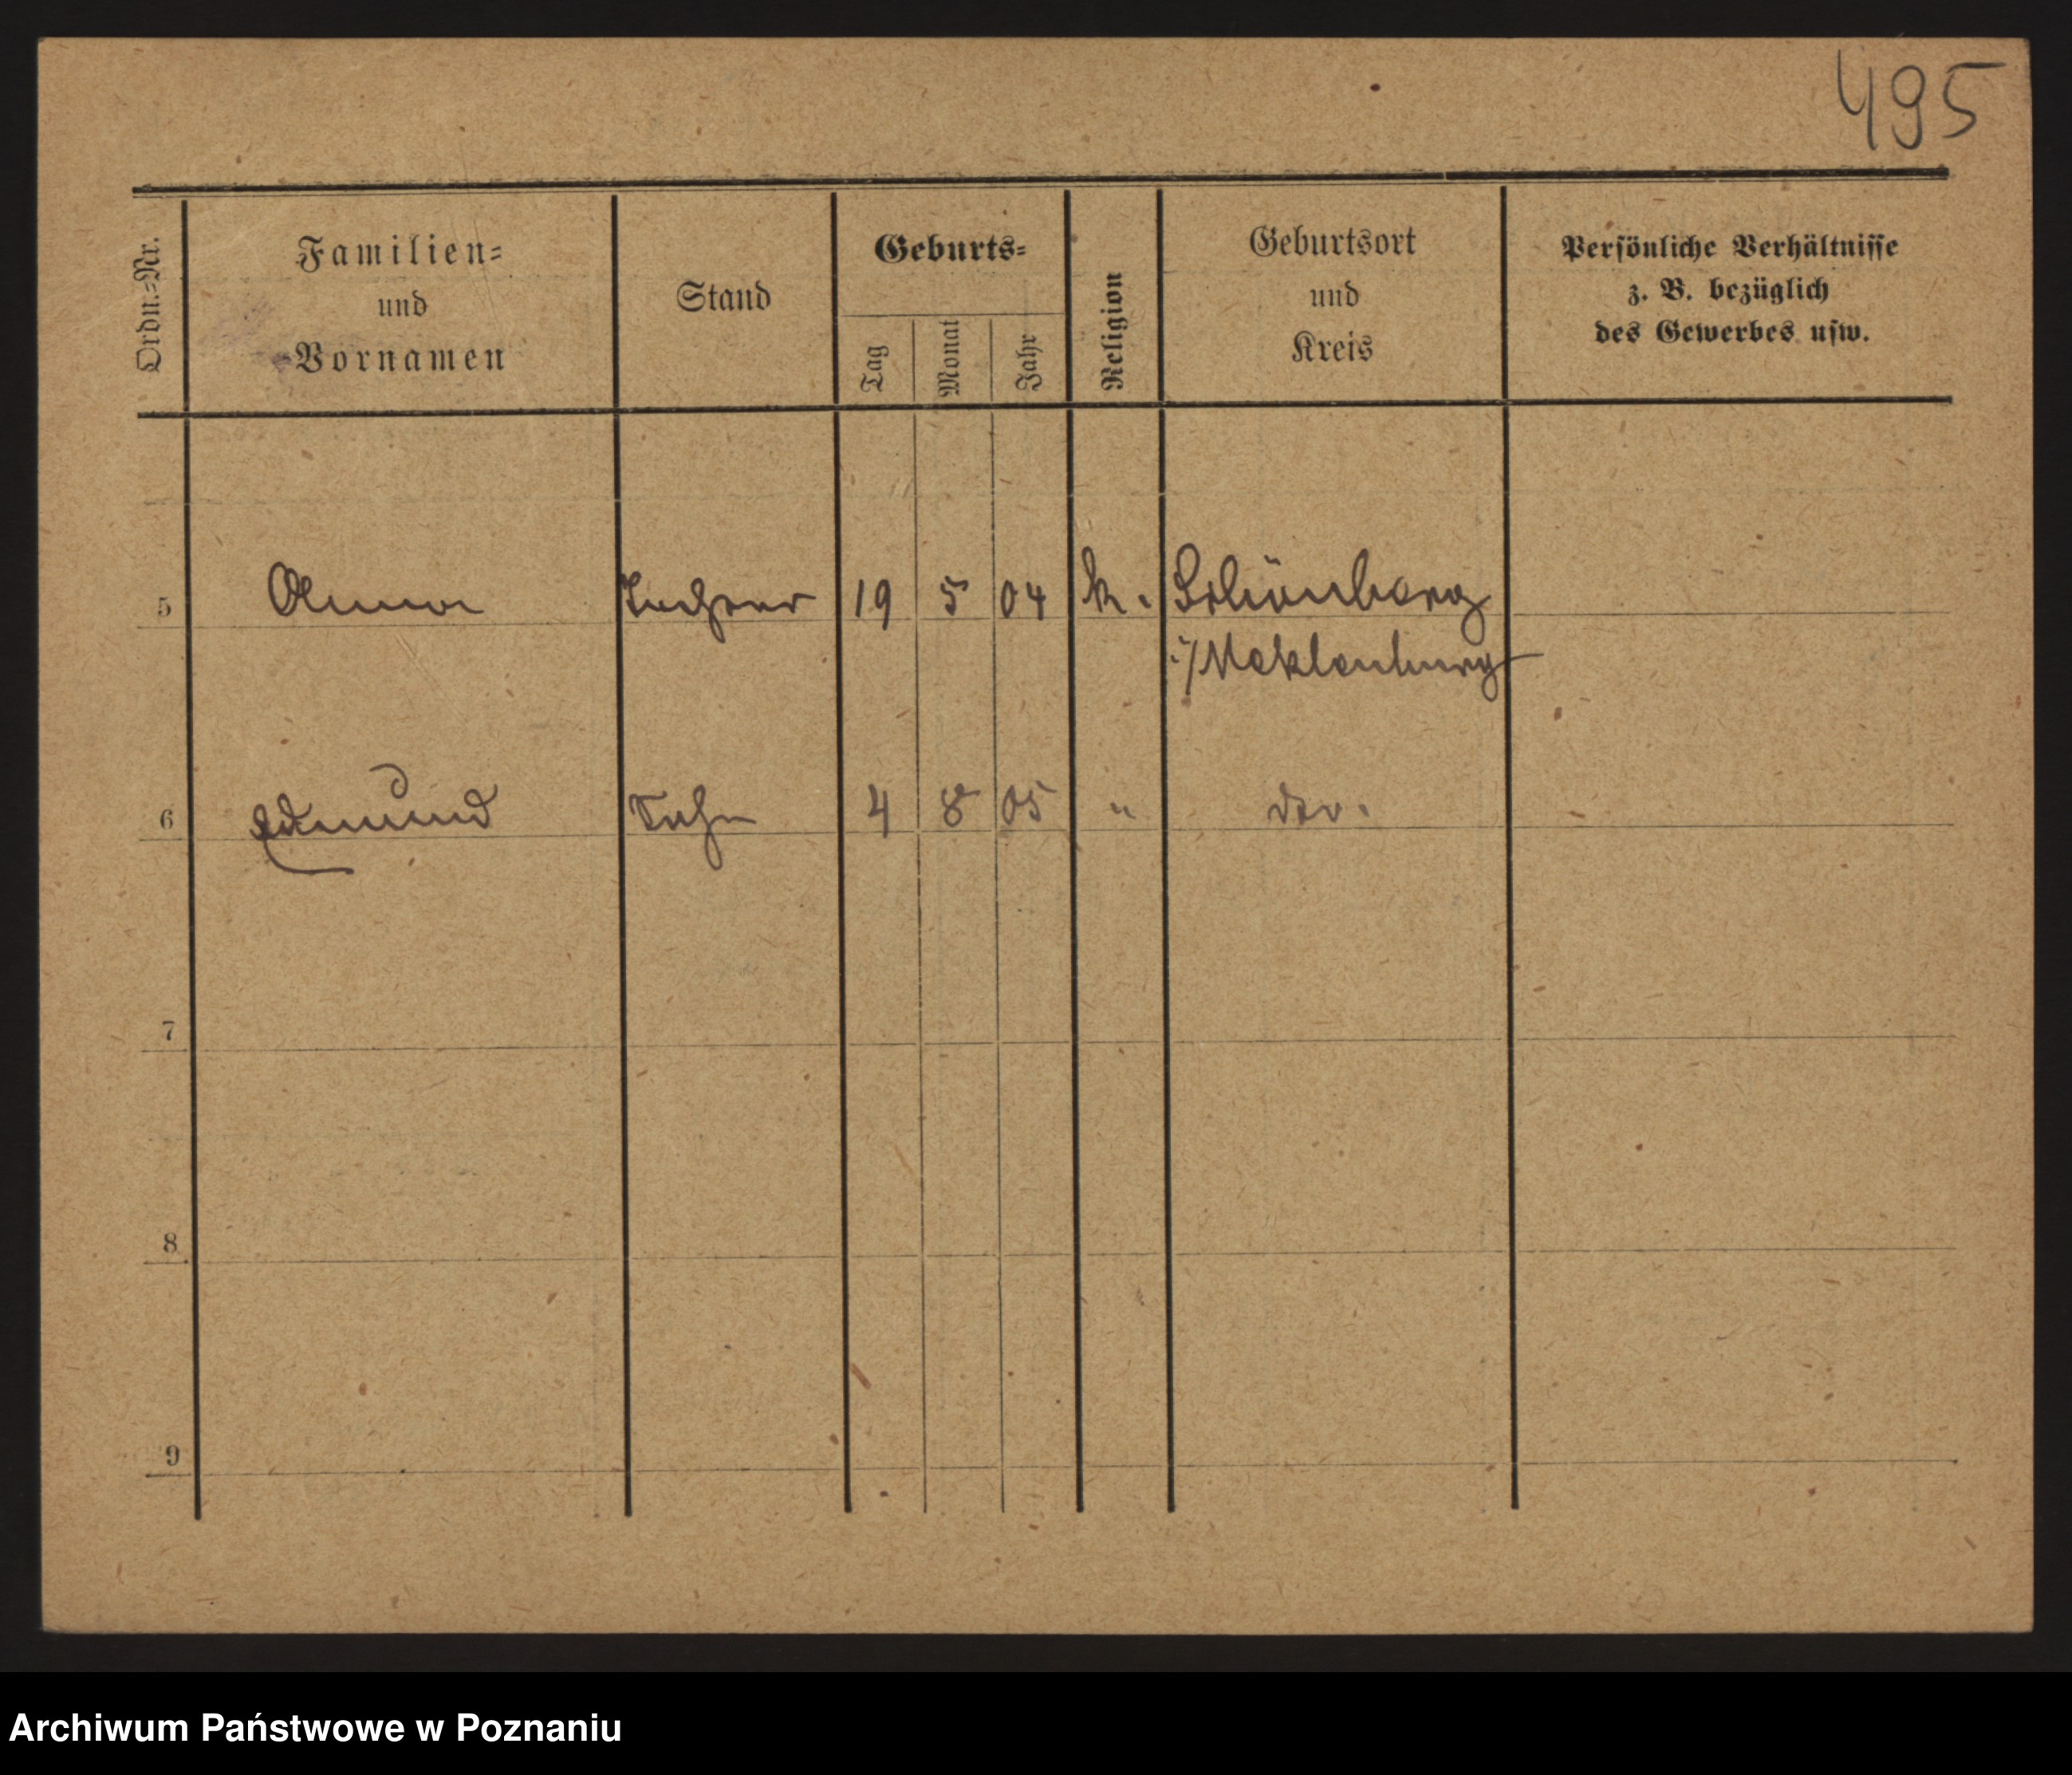 495
Ordn.-Nr.
Familien-
und
Vornamen
Stand
Geburts-
Tag
Monat
Jahr
Religion
Geburtsort
und
Kreis
Persönliche Verhältnisse
z. B. bezüglich
des Gewerbes usw.
5 Anna Tochter 19 5 04 k. Schönberg
i/Meklenburg
6 Edmund Sohn 4 8 05 " dto.
7
8
9
Archiwum Państwowe w Poznaniu